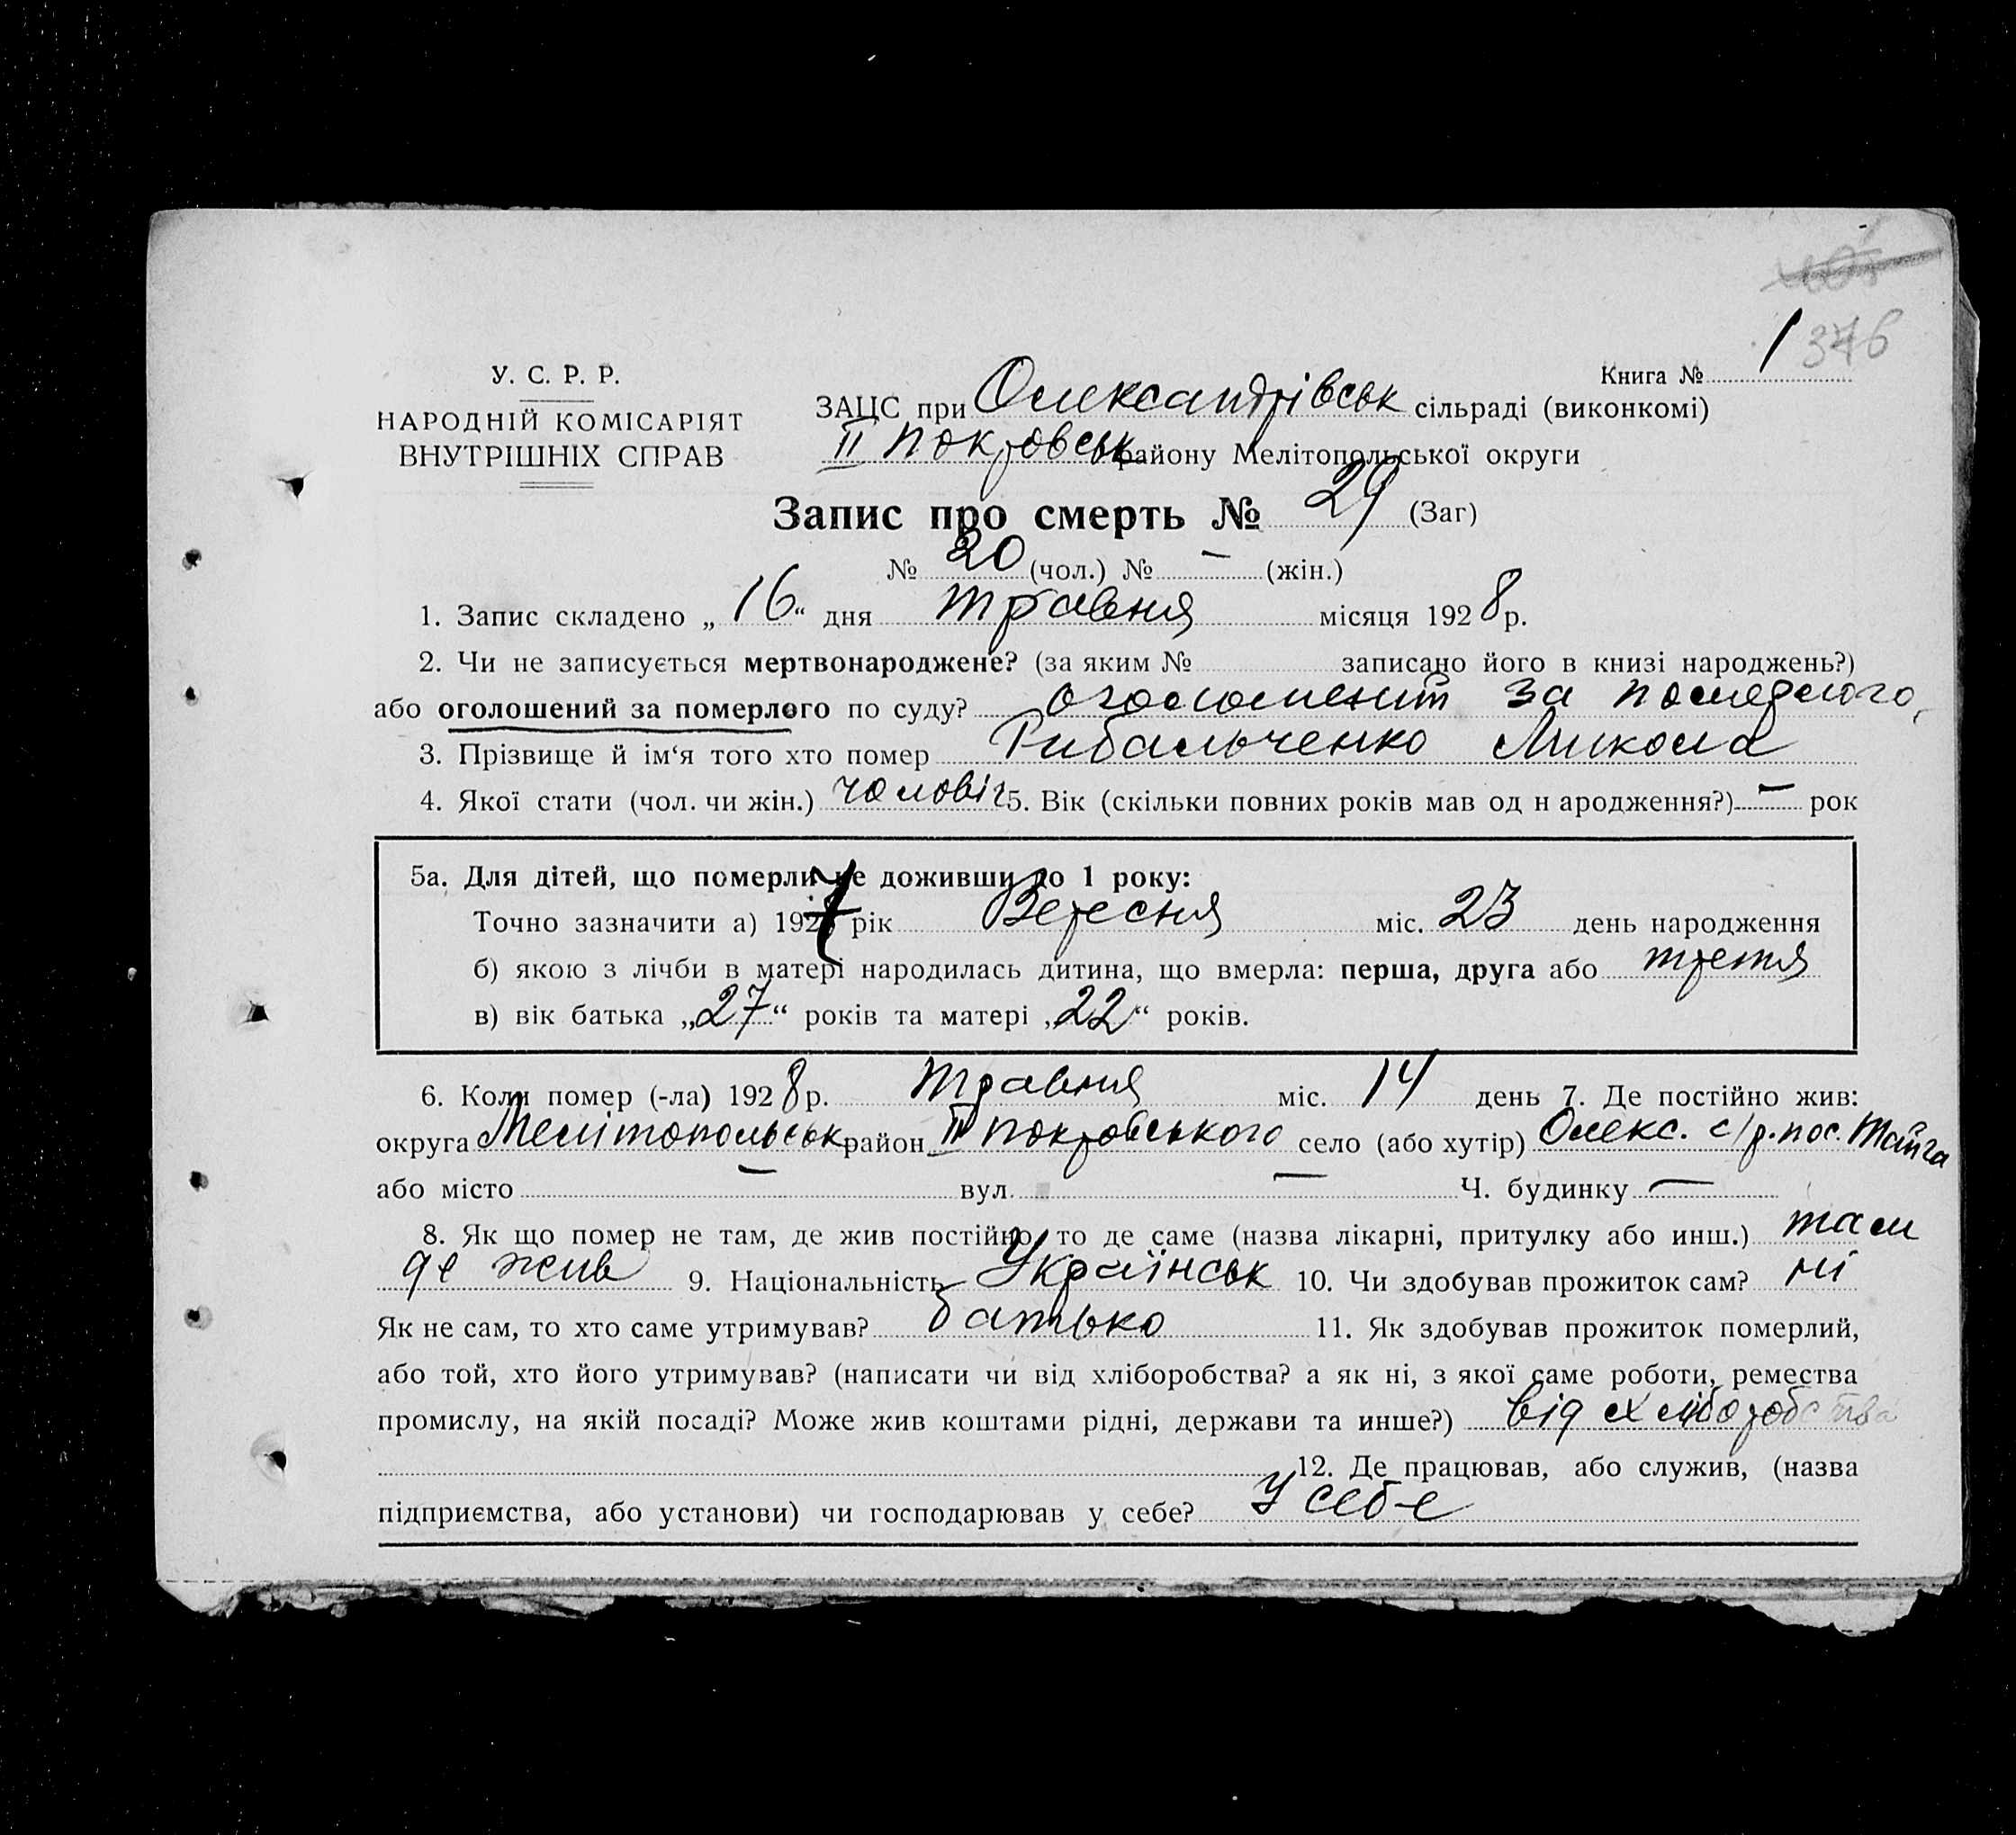 376
Книга № 1
У. С. Р. Р.
НАРОДНІЙ КОМІСАРІЯТ
ВНУТРІШНІХ СПРАВ
ЗАЦС при Олександрівськ сільраді (виконкомі)
ІІ Покровськ району Мелітопольської округи
Запис про смерть № 29 (Заг)
№ 20 (чол.) № — (жін.)
1. Запис складено „16“ дня травня місяця 1928 р.
2. Чи не записується мертвонароджене? (за яким № записано його в книзі народжень?)
або оголошений за померлого по суду? за
3. Прізвище й ім‘я того хто помер Рибальченко Микола
4. Якої стати (чол. чи жін.) чоловіч 5. Вік (скільки повних років мав од н ародження?) — рок
5а. Для дітей, що померли не доживши до 1 року:
Точно зазначити а) 1927 рік Вересня міс. 23 день народження
б) якою з лічби в матері народилась дитина, що вмерла: перша, друга або третя
в) вік батька „27“ років та матері „22“ років.
6. Коли помер (-ла) 1928 р. травня міс. 14 день 7. Де постійно жив:
округа Мелітопольськ район ІІ покровського село (або хутір) Олекс. с/р. пос. Тайга
або місто — вул. — Ч. будинку —
8. Як що помер не там, де жив постійно, то де саме (назва лікарні, притулку або инш.) там
де жив 9. Національність Українськ 10. Чи здобував прожиток сам? ні
Як не сам, то хто саме утримував? батько 11. Як здобував прожиток померлий,
або той, хто його утримував? (написати чи від хліборобства? а як ні, з якої саме роботи, ремества
промислу, на якій посаді? Може жив коштами рідні, держави та инше?) від хліборобства
12. Де працював, або служив, (назва
підприємства, або установи) чи господарював у себе? У себе